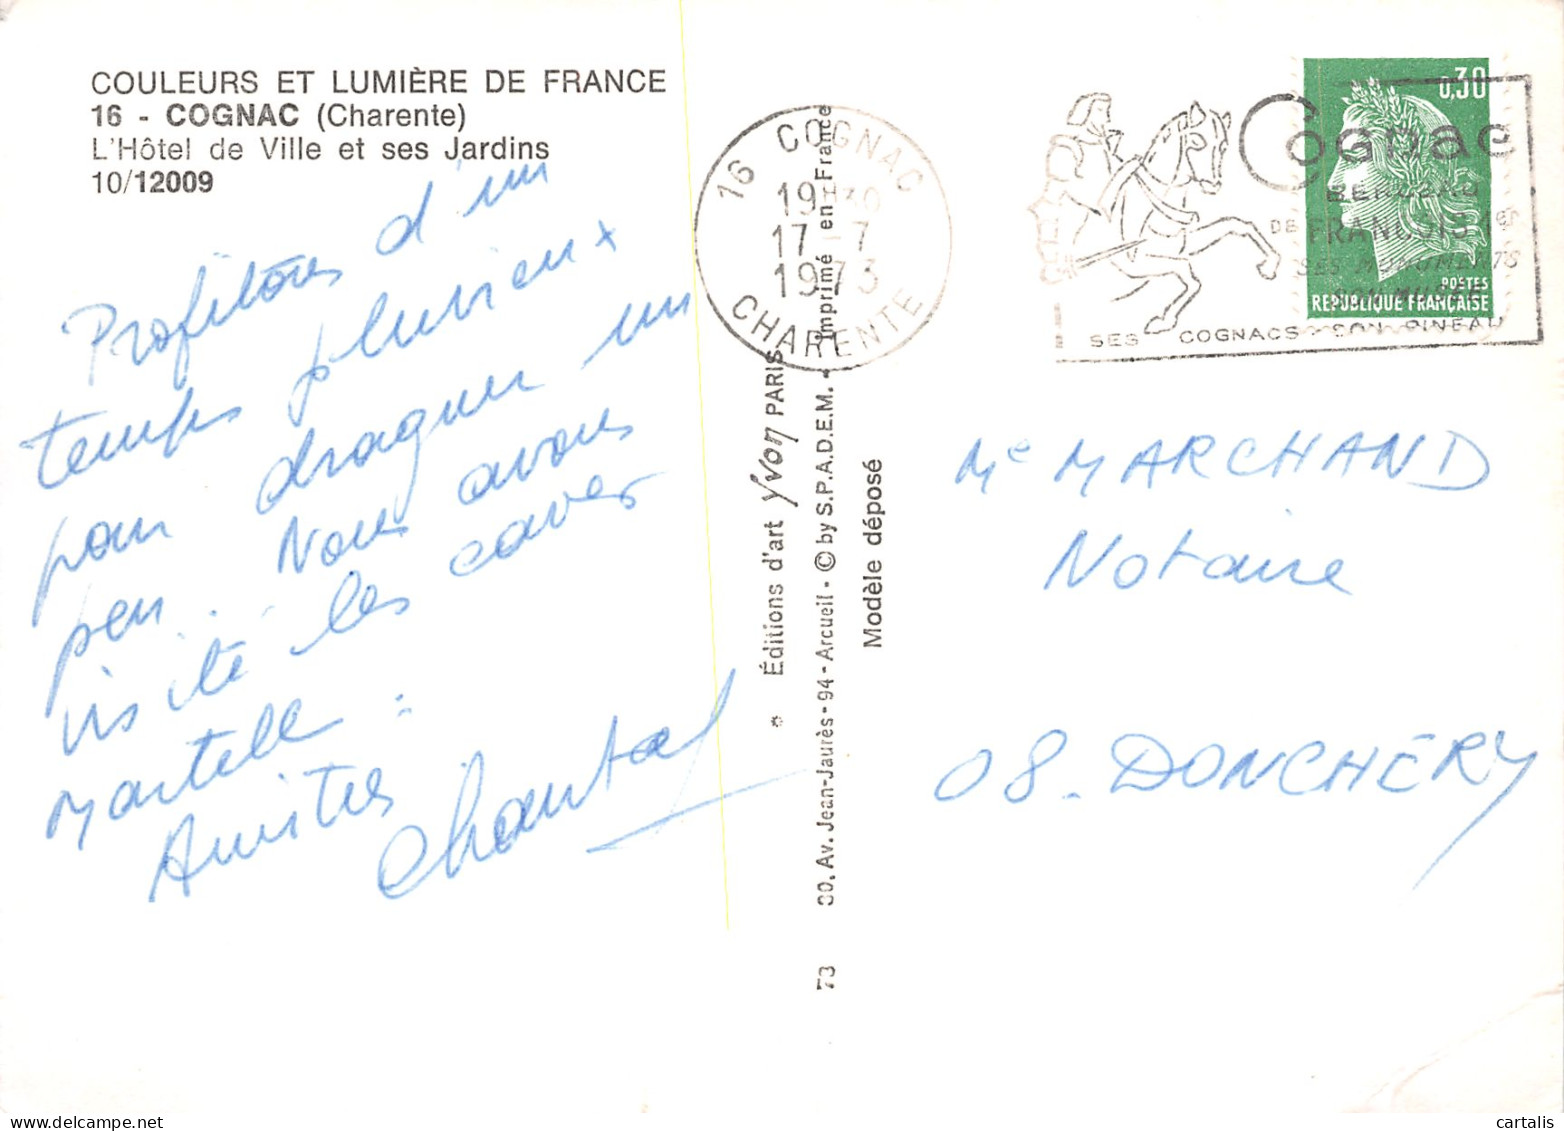 COULEURS ET LUMIÈRE DE FRANCE
16 - COGNAC (Charente)
L'Hôtel de Ville et ses Jardins
10/12009
Profitons d'un
temps pluvieux
pour draguer un
peu. Nous avons
visité les caves
Martell.
Amitiés
Chantal
* Éditions d'art Yvon PARIS
30, Av. Jean-Jaurès - 94 - Arcueil - © by S.P.A.D.E.M. - Imprimé en France
Modèle déposé
73
16 COGNAC
19 30
17-7
1973
CHARENTE
Cognac
BERCEAU
DE FRANCOIS 1er
SES MONUMENTS
SON MUSEE
SES COGNACS SON PINEAU
0,30
POSTES
REPUBLIQUE FRANÇAISE
Me MARCHAND
Notaire
08. DONCHERY
cartalis